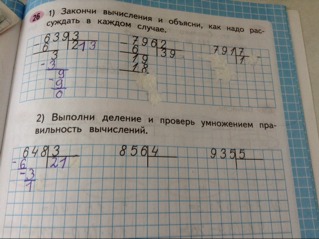 26 1) Закончи вычисления и объясни, как надо рас-
суждать в каждом случае.
6393 7962 7917
6 213 6 39 1
3 19
3 18
9
9
0
2) Выполни деление и проверь умножением пра-
вильность вычислений.
648 3 856 4 935 5
6 21
3
1